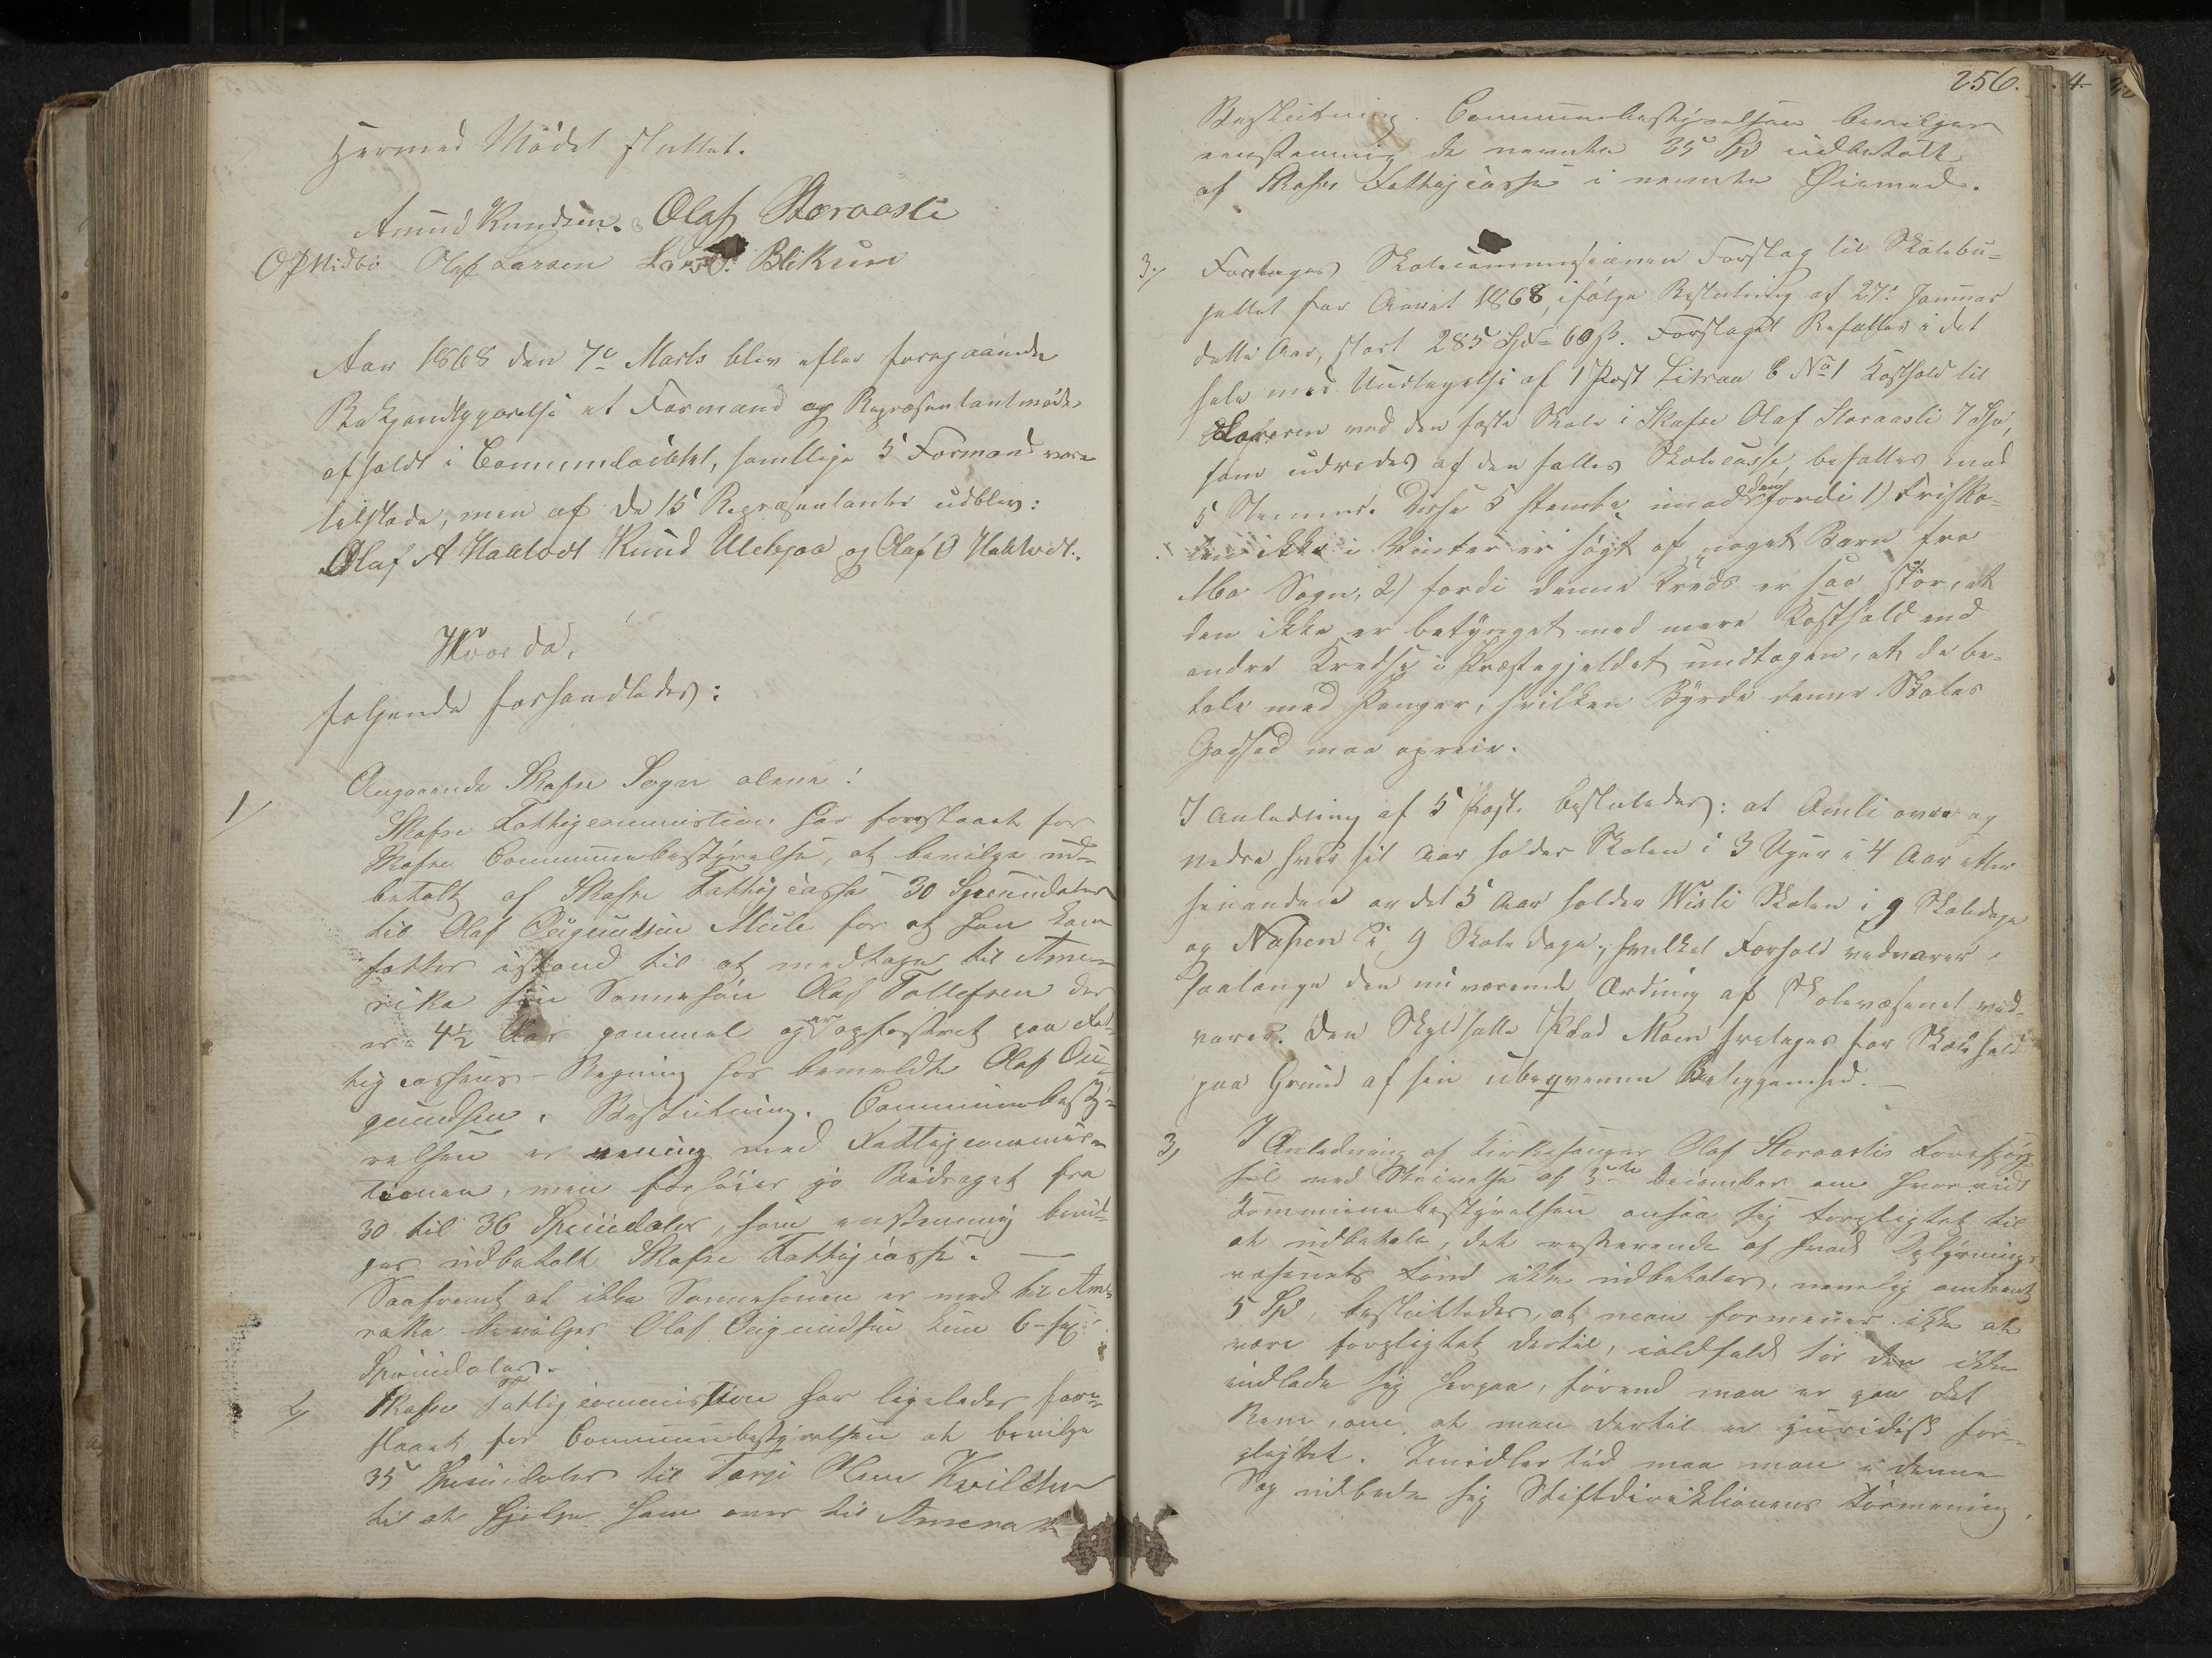 Hermed Mödet sluttet.
Amund Knudsen. Olaf Storaasli
O P Midbö Olaf Larsen Lars O. Bekuin
Aar 1868 den 7de Marts blev efter foregaaende
Bekjendtgjørelse et Formand og Repræsentantmøde
afholdt i Communelocalet, samtlige 5 Formænd vare
tilstede, men af de 15 Repræsentanter udblev:
Olaf A Haatvedt Knud Uleberaa og Olaf O Haatvedt.
Hvor da,
følgende forhandledes:
1/ Angaaende Skafse Sogn alene!
Skafse Fattigcommission har foreslaaet for
Skafse Communebestyrelse, at bevilge ud-
betalt af Skafse Fattigcasse 30 Speciedaler
til Olaf Øigundsen Mule for at han kan
sættes istand til at medtage til Ame-
rika sin Sønnesøn Olaf Tollefsen der
er 4½ Aar gammel og er opfostret paa Fat-
tigcassens Regning hos bemeldte Olaf Øi-
gundsen. Beslutning. Communebesty-
relsen er enig med Fattigcommis-
sionen, men forhøier jo Bidraget fra
30 til 36 Speciedaler, som enstemmig bevil-
ges udbetalt Skafse Fattigcasse. —
Saafremt at ikke Sønnesønnen er med til Ame-
rika bevilges Olaf Øigundsen kun 6-sex
Speciedaler.
2/ Skafse Fattigcommission har ligeledes fore-
slaaet for Communebestyrelsen at bevilge
35 Speciedaler til Tarje Olsen Kvilekn
til at hjelpe ham over til Amerika
256.
Beslutning. Communebestyrelsen bevilger
eenstemmig de nevnte 35 Spd udbetalt
af Skafse Fattigcasse i nevnte Øiemed.
3/ Foretages Skolecommissionen Forslag til Skolebu-
jettet for Aaret 1868, ifølge Beslutning af 27de Januar
dette Aar, stort 285 Spd 60 s. Forslaget Vefattes i det
hele med Undtagelse af 1 Post Litraa C No 1 Kosthold til
Læreren ved den faste Skole i Skafse Olaf Storaasli 7 Spd,
som udredes af den fælles Skolecasse, befattes med
5 Stemmer. Disse 5 stemte imod den fordi 1) Friska-
len ikke i Vinter er søgt af noget Barn fra
Mo Sogn, 2) fordi denne Kreds er saa stor, at
den ikke er betynget med mere Kosthold end
andre Kredse i Præstegjeldet undtagen, at de be-
tale med Penger, hvilken Byrde denne Skoles
Godhed maa opveie.
I Anledning af 5 Post. besluttedes: at Omli øvre og
nedre hver sit Aar holder Skolen i 3 Uger i 4 Aar efter
hinanden og det 5 Aar holder Wisli Skolen i 9 Skoledage
og Næsen i 9 Skole dage; hvilket Forhold vedvarer
saalænge den nu værende Ordning af Skolevæsenet ved-
varer. Den Skyldsatte Plads Moen fretages for Skolehold
paa Grund af sin ubeqvemme Beliggenhed. —
3, I Anledning af Kirkesanger Olaf Storaaslis Forespørg-
sel ved Skrivelse af 3die December om hvorvidt
Kommunebestyrelsen ansaa sig forpligtet til
at udbetale, det resterende af hvad Oplysnings
væsenets Fond ikke udbetaler, nemlig omtrent
5 Spd, besluttedes, at man formener ikke at
være forpligtet dertil, ialdfald tør den ikke
indlade sig herpaa, førend man er paa det
Rene, om, at man dertil er juridisk for-
pligtet. Imidlertid maa man i denne
Sag udbede sig Stiftdirektionens Formening.